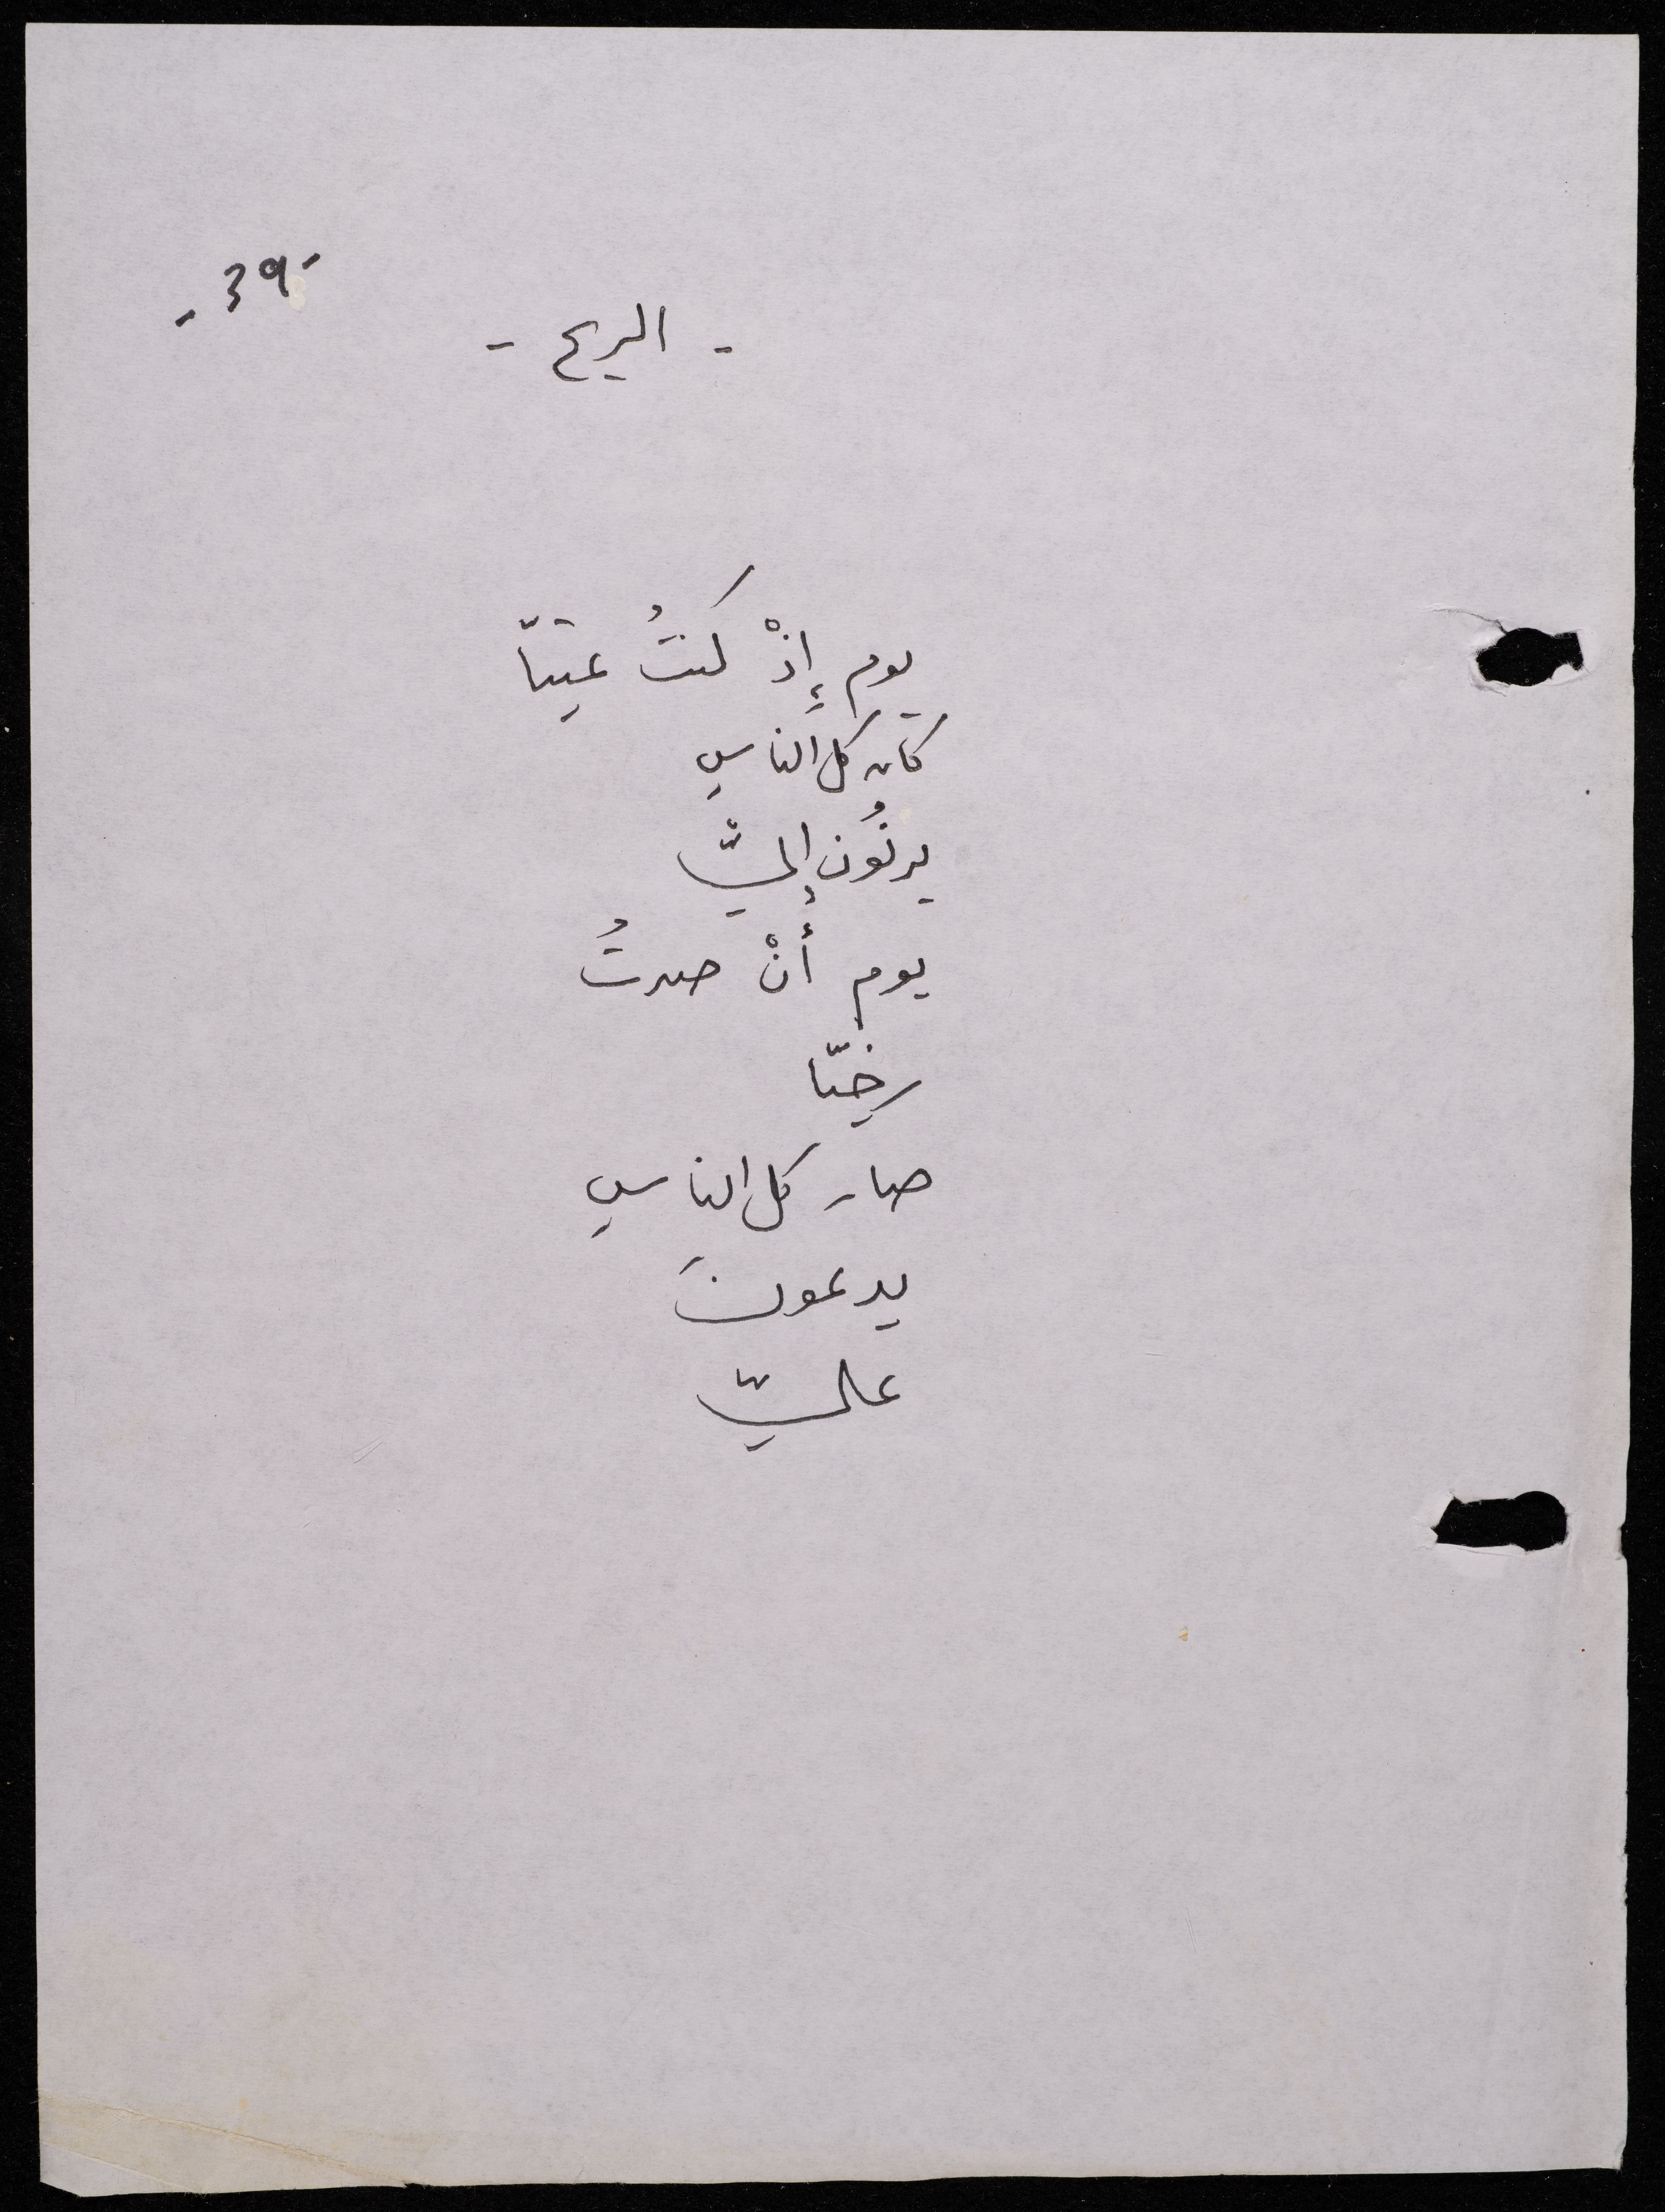 -39-
- الريح -
يوم إذْ كنتُ عتيّا
كان كل الناس
يرنُون إليّ
يوم أنْ صرتُ
رخيّا
صار كل الناس
يدعونَ
عليّ